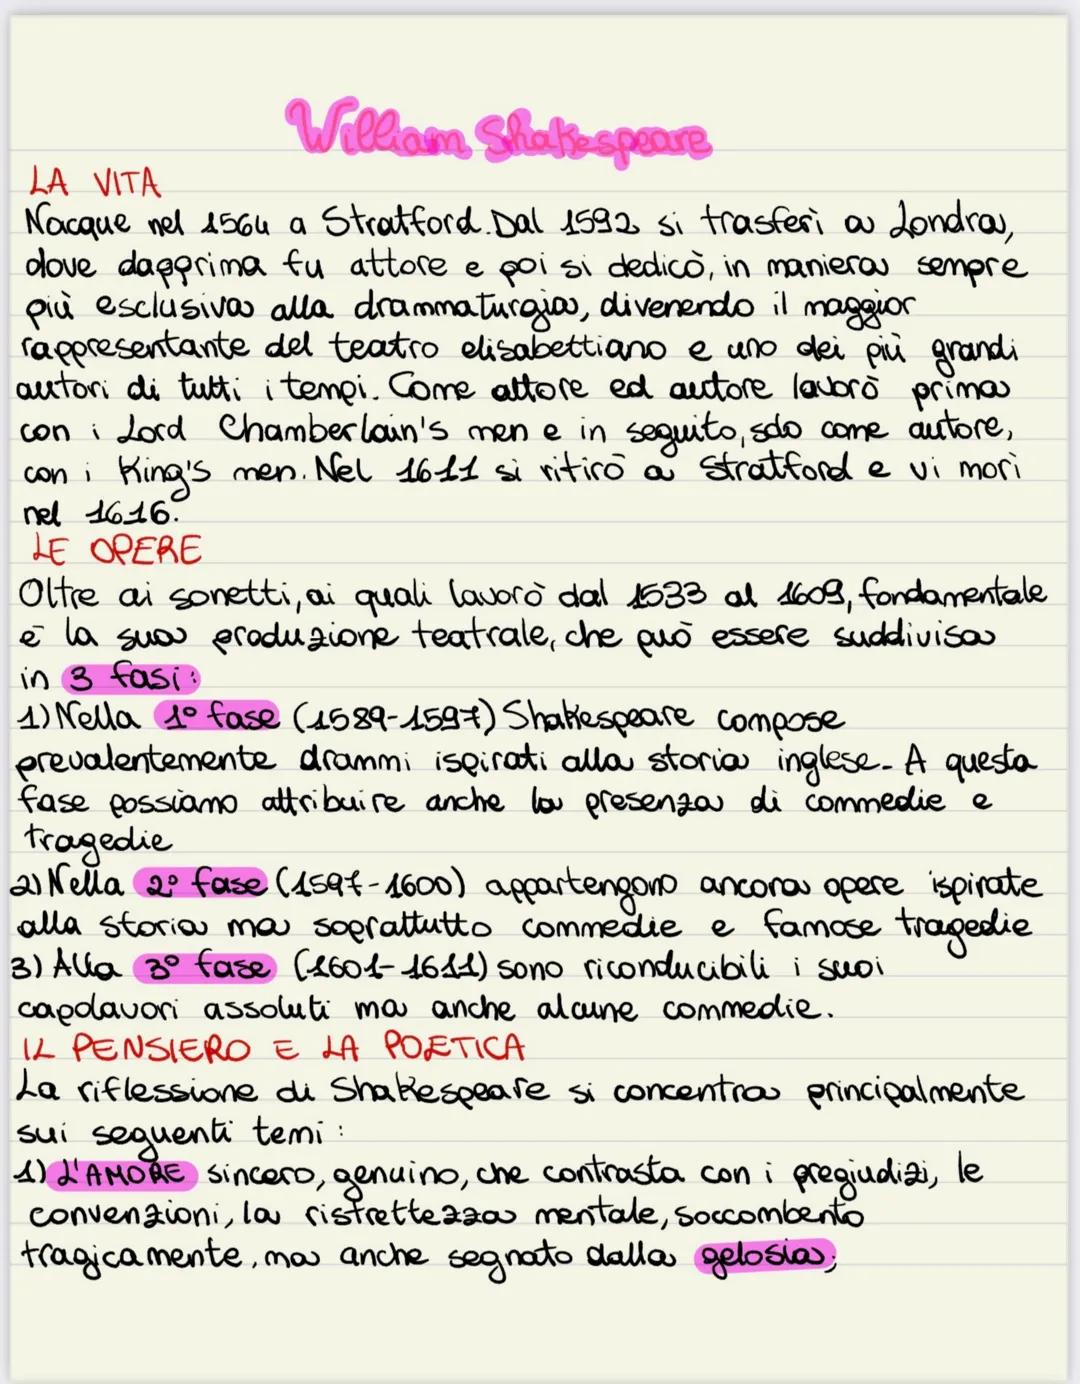 William Shakespeare
LA VITA
Nacque nel 1564 a Stratford. Dal 1592 si trasferì a Londra,
dove dapprima fu attore e poi si dedicò, in maniera sempre
più esclusiva alla drammaturgia, divenendo il maggior
rappresentante del teatro elisabettiano e uno dei più grandi
autori di tutti i tempi. Come attore ed autore lavorò prima
con i Lord Chamberlain's men e in seguito, solo come autore,
con i King's men. Nel 1611 si ritirò a Stratford e vi morì
nel 1616.
LE OPERE
Oltre ai sonetti, ai quali lavorò dal 1533 al 1609, fondamentale
è la sua produzione teatrale, che può essere suddivisa
in 3 fasi:
1) Nella 1° fase (1589-1597) Shakespeare compose
prevalentemente drammi ispirati alla storia inglese. A questa
fase possiamo attribuire anche la presenza di commedie e
tragedie
2) Nella 2° fase (1597-1600) appartengono ancora opere ispirate
alla storia ma soprattutto commedie e famose tragedie
3) Alla 3° fase (1601-1611) sono riconducibili i suoi
capolavori assoluti ma anche alcune commedie.
IL PENSIERO E LA POETICA
La riflessione di Shakespeare si concentra principalmente
sui seguenti temi:
1) L'AMORE sincero, genuino, che contrasta con i pregiudizi, le
convenzioni, la ristrettezza mentale, soccombento
tragicamente, ma anche segnato dalla gelosia;